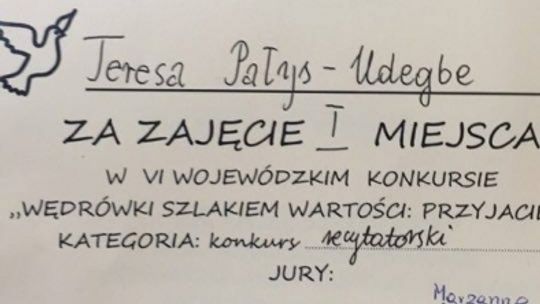 Teresa Pałys-Udegbe
ZA ZAJĘCIE I MIEJSCA
W VI WOJEWÓDZKIM KONKURSIE
„WĘDRÓWKI SZLAKIEM WARTOŚCI: PRZYJACIE
KATEGORIA: konkurs recytatorski
JURY:
Marzanna